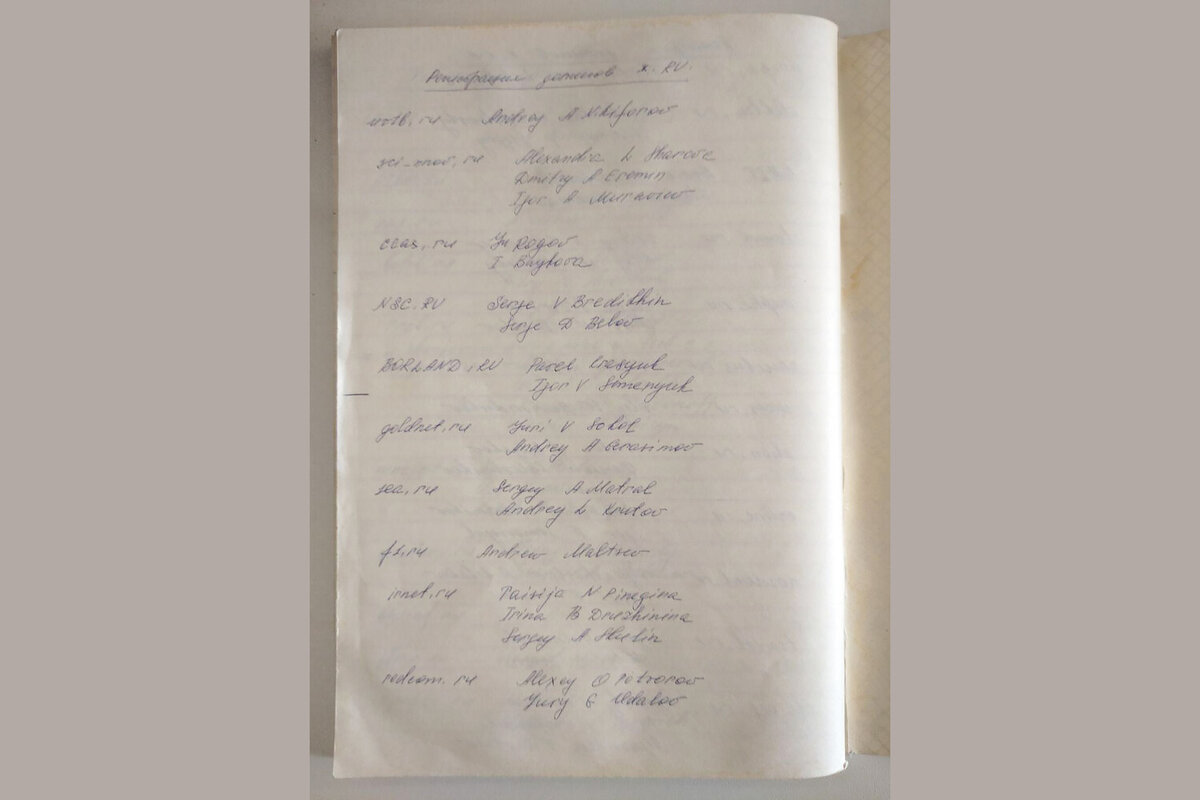 Регистрация доменов x.RU.
Andrey A Nikiforov
sci-nnov.ru Alexandra L Sharova
Dmitry A Eremin
Igor A
ccas.ru Yu Rogov
I
NSC.RU Serge V Bredikhin
Serge D Belov
BORLAND.RU Pavel
Igor V Semenyuk
goldnet.ru Yuri V Sokol
Andrey A Gerasimov
sea.ru Sergey A
Andrey L Krutov
Andrew Maltsev
irnet.ru Taisija N Pinegina
Irina B Druzhinina
Sergey A
redcom.ru Alexey O
Yury G Udalov